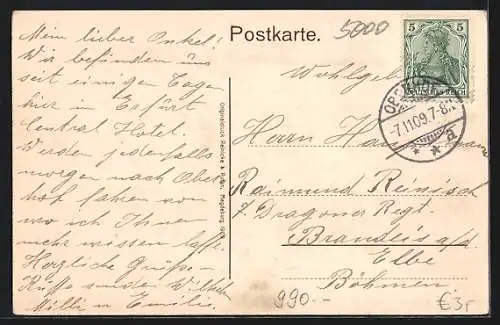 Postkarte.
5000
5 5
DEUTSCHES REICH
-7.11.09.7-8
* * a
Mein lieber Onkel!
Wir befinden uns
seit einigen Tagen
hier in Erfurt
Central Hotel.
Werden jedenfalls
morgen nach Ober
hof fahren von
wo ich Ihnen
mehr wissen lasse.
Herzliche Grüsse
Küsse senden
Milli u Emilie.
Originaldruck Magdeburg
Wohlgeb
Herrn Hauptmann
Raimund Reinisch
7. Dragoner Regt.
Brandeis a/d
Elbe
Böhmen
990.-
€3r